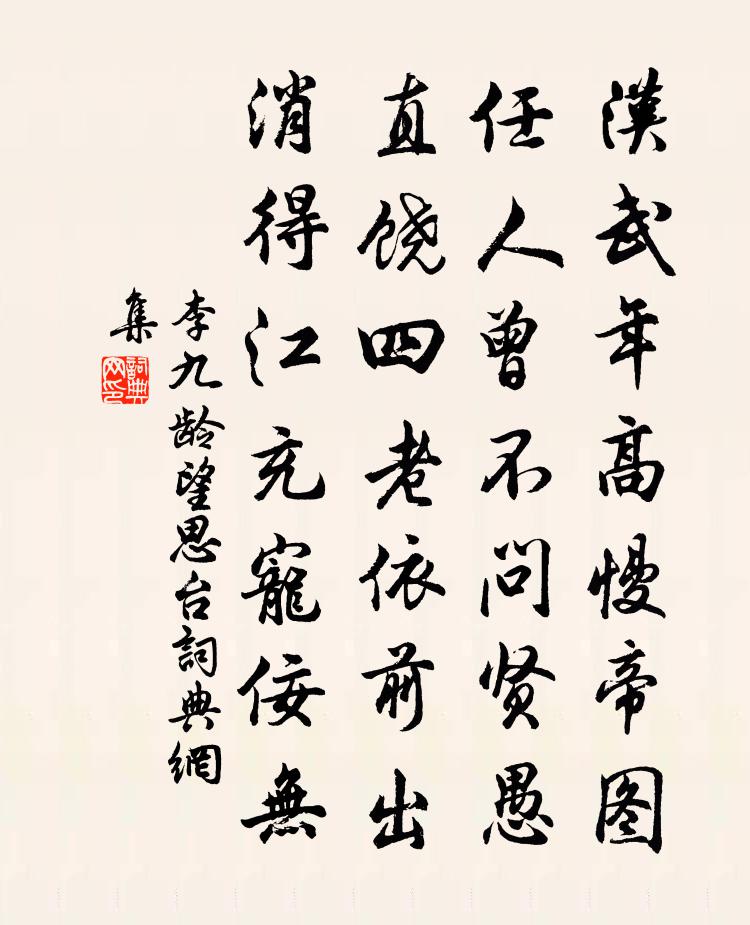 漢武年高慢帝图
任人曾不问贤愚
直饶四老依前出
消得江充寵佞無
李九龄望思台詞典網
集
詞典
网印